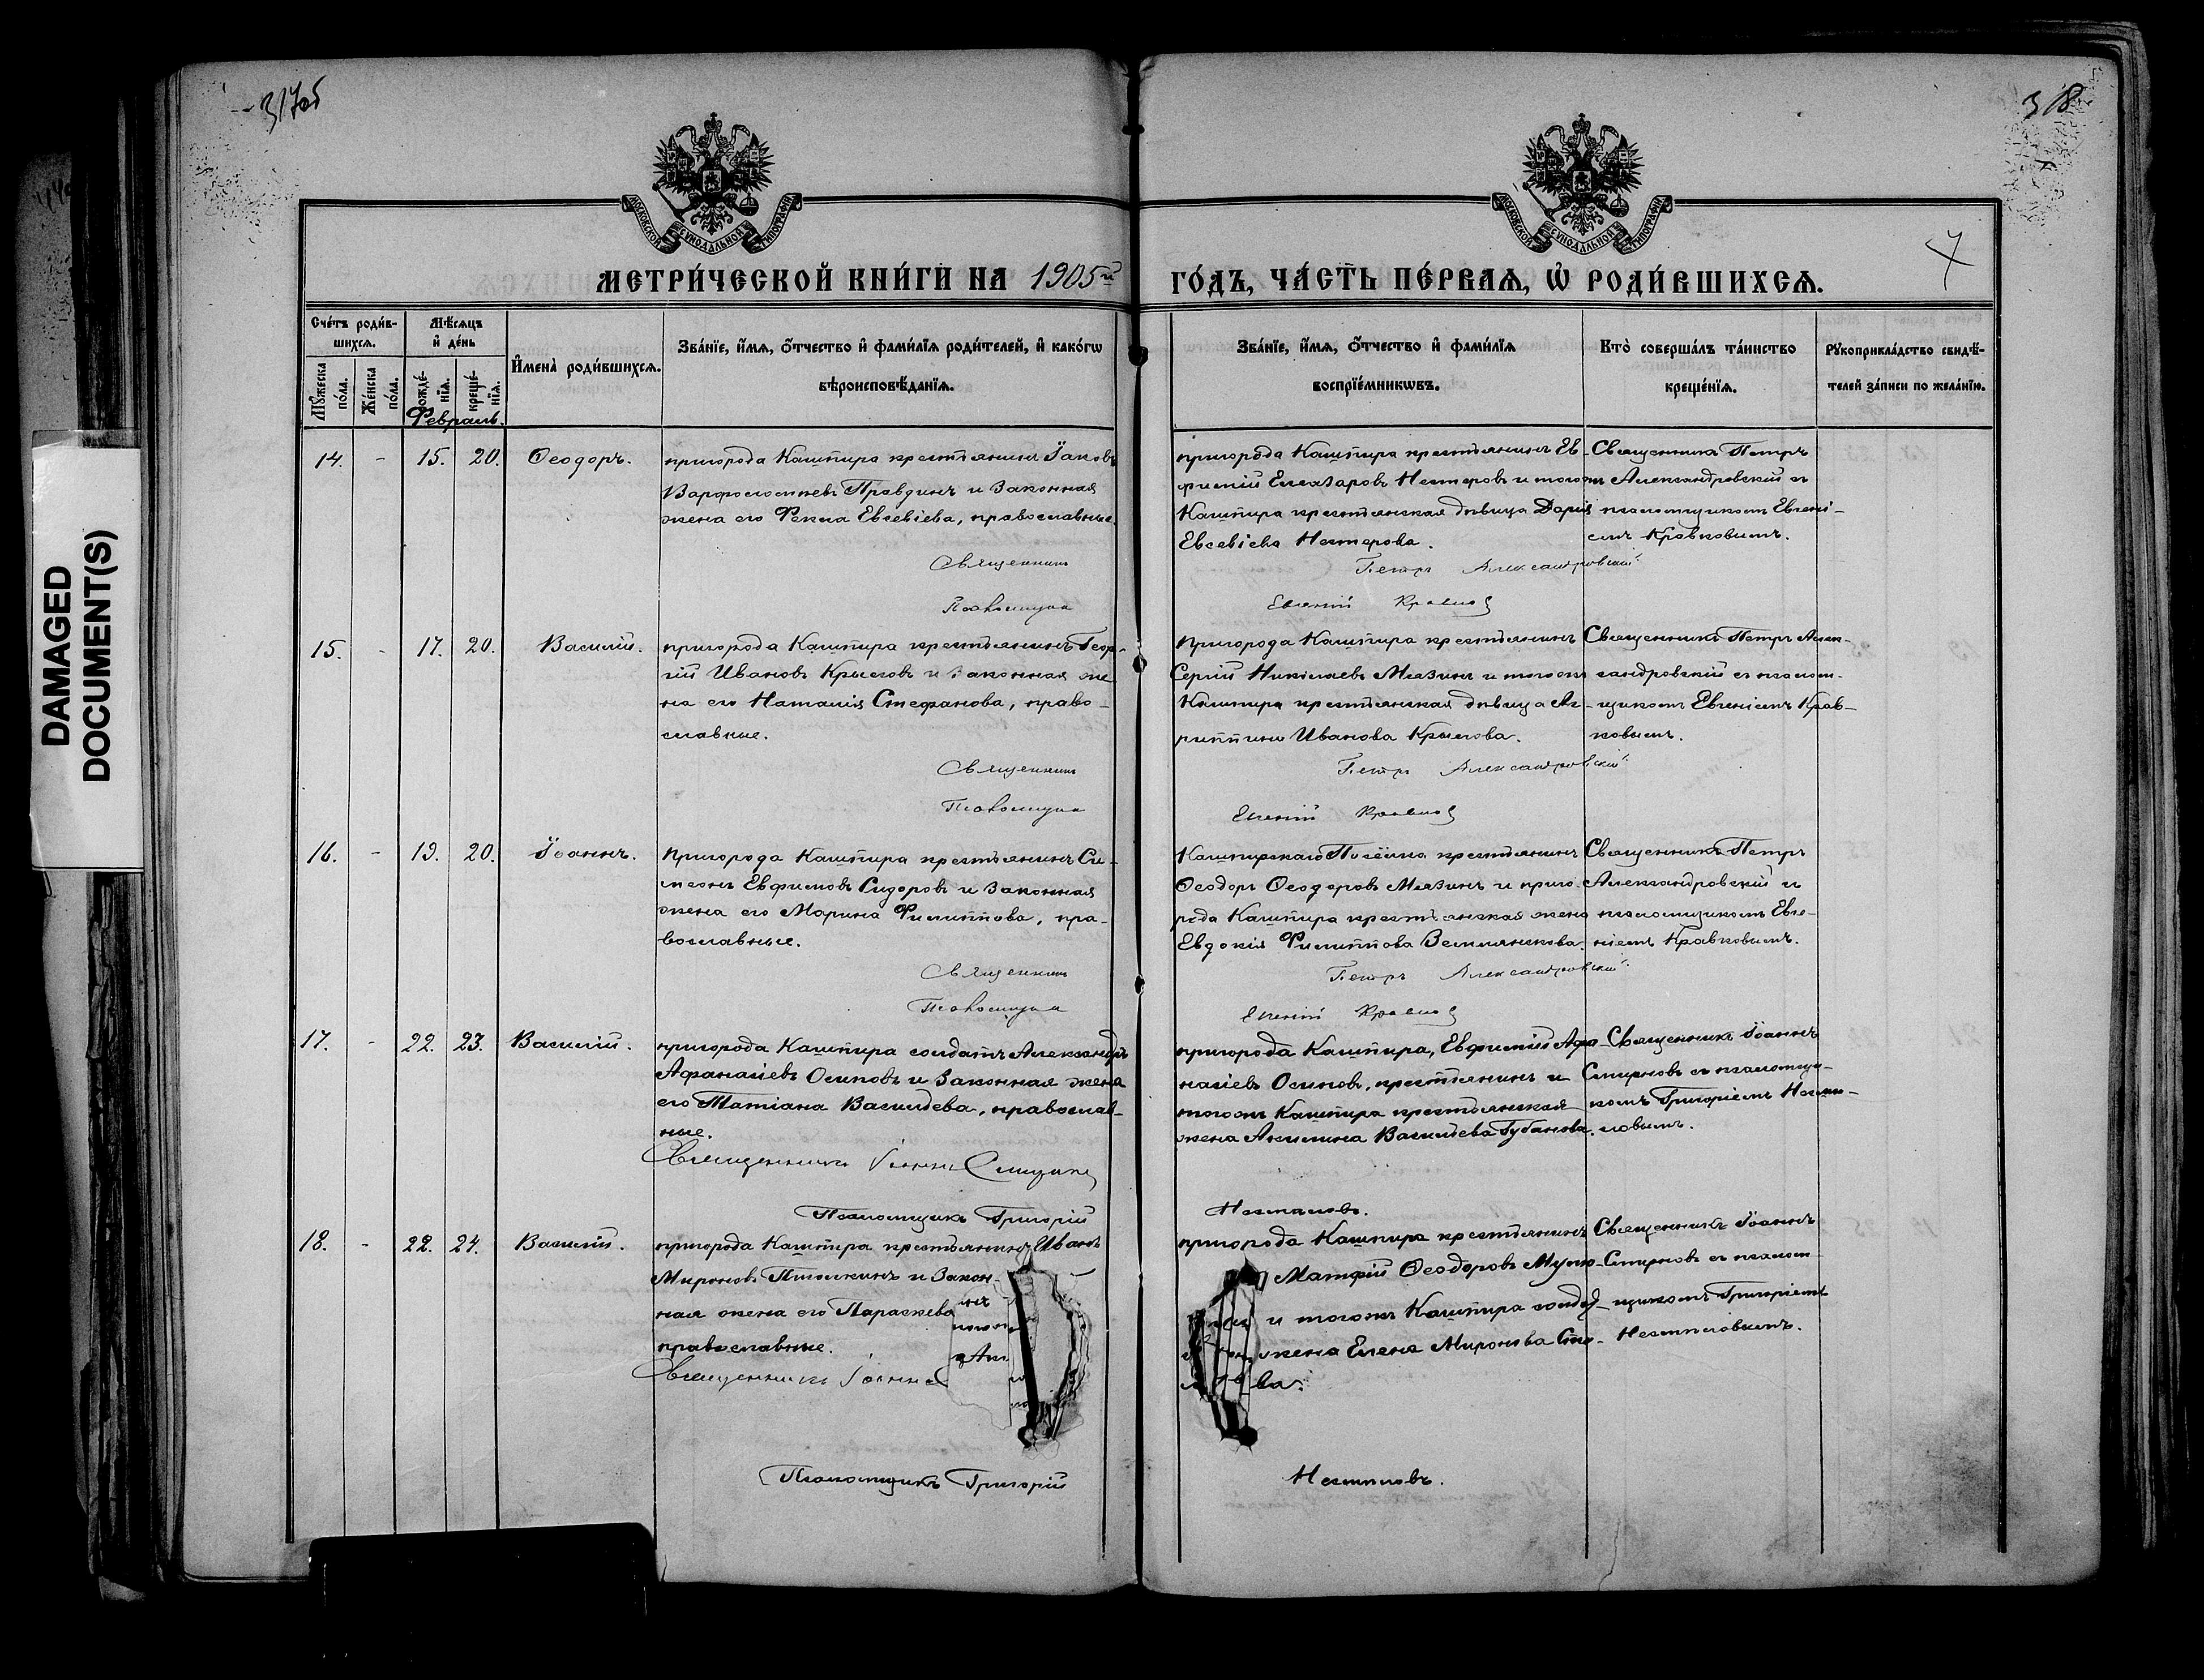 317об
318
7
DAMAGED
DOCUMENT(S)
МОСКОВСКОЙ СѴНОДАЛЬНОЙ ТИПОГРАФІИ
МОСКОВСКОЙ СѴНОДАЛЬНОЙ ТИПОГРАФІИ
МЕТРИ́ЧЕСКОЙ КНИ́ГИ НА 1905й
ГО́ДЪ, ЧА́СТЬ ПЕ́РВАѦ, Ѡ҆ РОДИ́ВШИХСѦ.
Сче́тъ роди́в-
шихсѧ.
Мꙋ́жеска по́ла.
Же́нска по́ла.
Мѣ́сѧцъ
и҆ де́нь
рожде́-
нїѧ.
креще́-
нїѧ.
Февраль.
И҆мена̀ роди́вшихсѧ.
Зва́нїе, и҆́мѧ, ѻ҆́тчество и҆ фами́лїѧ роди́телей, и҆ како́гѡ
вѣроисповѣ́данїѧ.
Зва́нїе, и҆́мѧ, ѻ҆́тчество и҆ фами́лїѧ
воспрїе́мникѡвъ.
Кто̀ соверша́лъ та́инство
креще́нїѧ.
Рꙋкоприкла́дство свидѣ́-
телей за́писи по жела́нїю.
14. - 15. 20. Ѳеодоръ.
пригорода Кашпира крестьянинъ Іаковъ
Варфоломеевъ Правдинъ и законная
жена его Фекла Евсевіева, православные.
Священникъ
Псаломщикъ
пригорода Кашпира крестьянинъ Ев-
фимій Елеазаровъ Нестеровъ и тогожъ
Кашпира крестьянская дѣвица Дарія
Евсевіева Нестерова.
Петръ Александровскій
Евгеній Кравков
Священникъ Петръ
Александровскій съ
псаломщикомъ Евгені-
емъ Кравковымъ.
15. - 17. 20. Василій.
пригорода Кашпира крестьянинъ Геор-
гій Ивановъ Крыловъ и законная же
на его Наталія Стефанова, право-
славные.
Священникъ
Псаломщикъ
Пригорода Кашпира крестьянинъ
Сергій Николаевъ Мязинъ и тогожъ
Кашпира крестьянская дѣвица Аг-
риппина Иванова Крылова.
Петръ Александровскій
Евгеній Кравков
Священникъ Петръ Алек-
сандровскій съ псалом-
щикомъ Евгеніемъ Крав-
ковымъ.
16. - 19. 20. Іоаннъ.
Пригорода Кашпира крестьянинъ Си-
меонъ Евфимовъ Сидоровъ и законная
жена его Марина Филиппова, пра-
вославные.
Священникъ
Псаломщикъ
Кашпирскаго Посёлка крестьянинъ
Ѳеодоръ Ѳеодоровъ Мязинъ и приго-
рода Кашпира крестьянская жена
Евдокія Филиппова Земляникова.
Петръ Александровскій
Евгеній Кравков
Священникъ Петръ
Александровскій съ
псаломщикомъ Евге-
ніемъ Кравковымъ.
17. - 22. 23. Василій.
пригорода Кашпира солдатъ Александръ
Афанасіевъ Осиповъ и законная жена
его Татіана Васильева, православ-
ные.
Священникъ Іоаннъ Смирнов
Псаломщикъ Григорій
пригорода Кашпира, Евфимій Афа-
насіевъ Осиповъ, крестьянинъ и
тогожъ Кашпира крестьянская
жена Акилина Васильева Губанова.
Священникъ Іоаннъ
Смирновъ съ псаломщи-
комъ Григоріемъ
18. - 22. 24. Василій.
пригорода Кашпира крестьянинъ Иванъ
Мироновъ Птолкинъ и закон-
ная жена его Параскева
православные.
Священникъ Іоаннъ
Псаломщикъ Григорій
пригорода Кашпира крестьянинъ
Матфій Ѳеодоровъ
и тогожъ Кашпира солдат-
жена Елена Миронова
Священникъ Іоаннъ
Смирновъ съ псалом-
щикомъ Григоріемъ